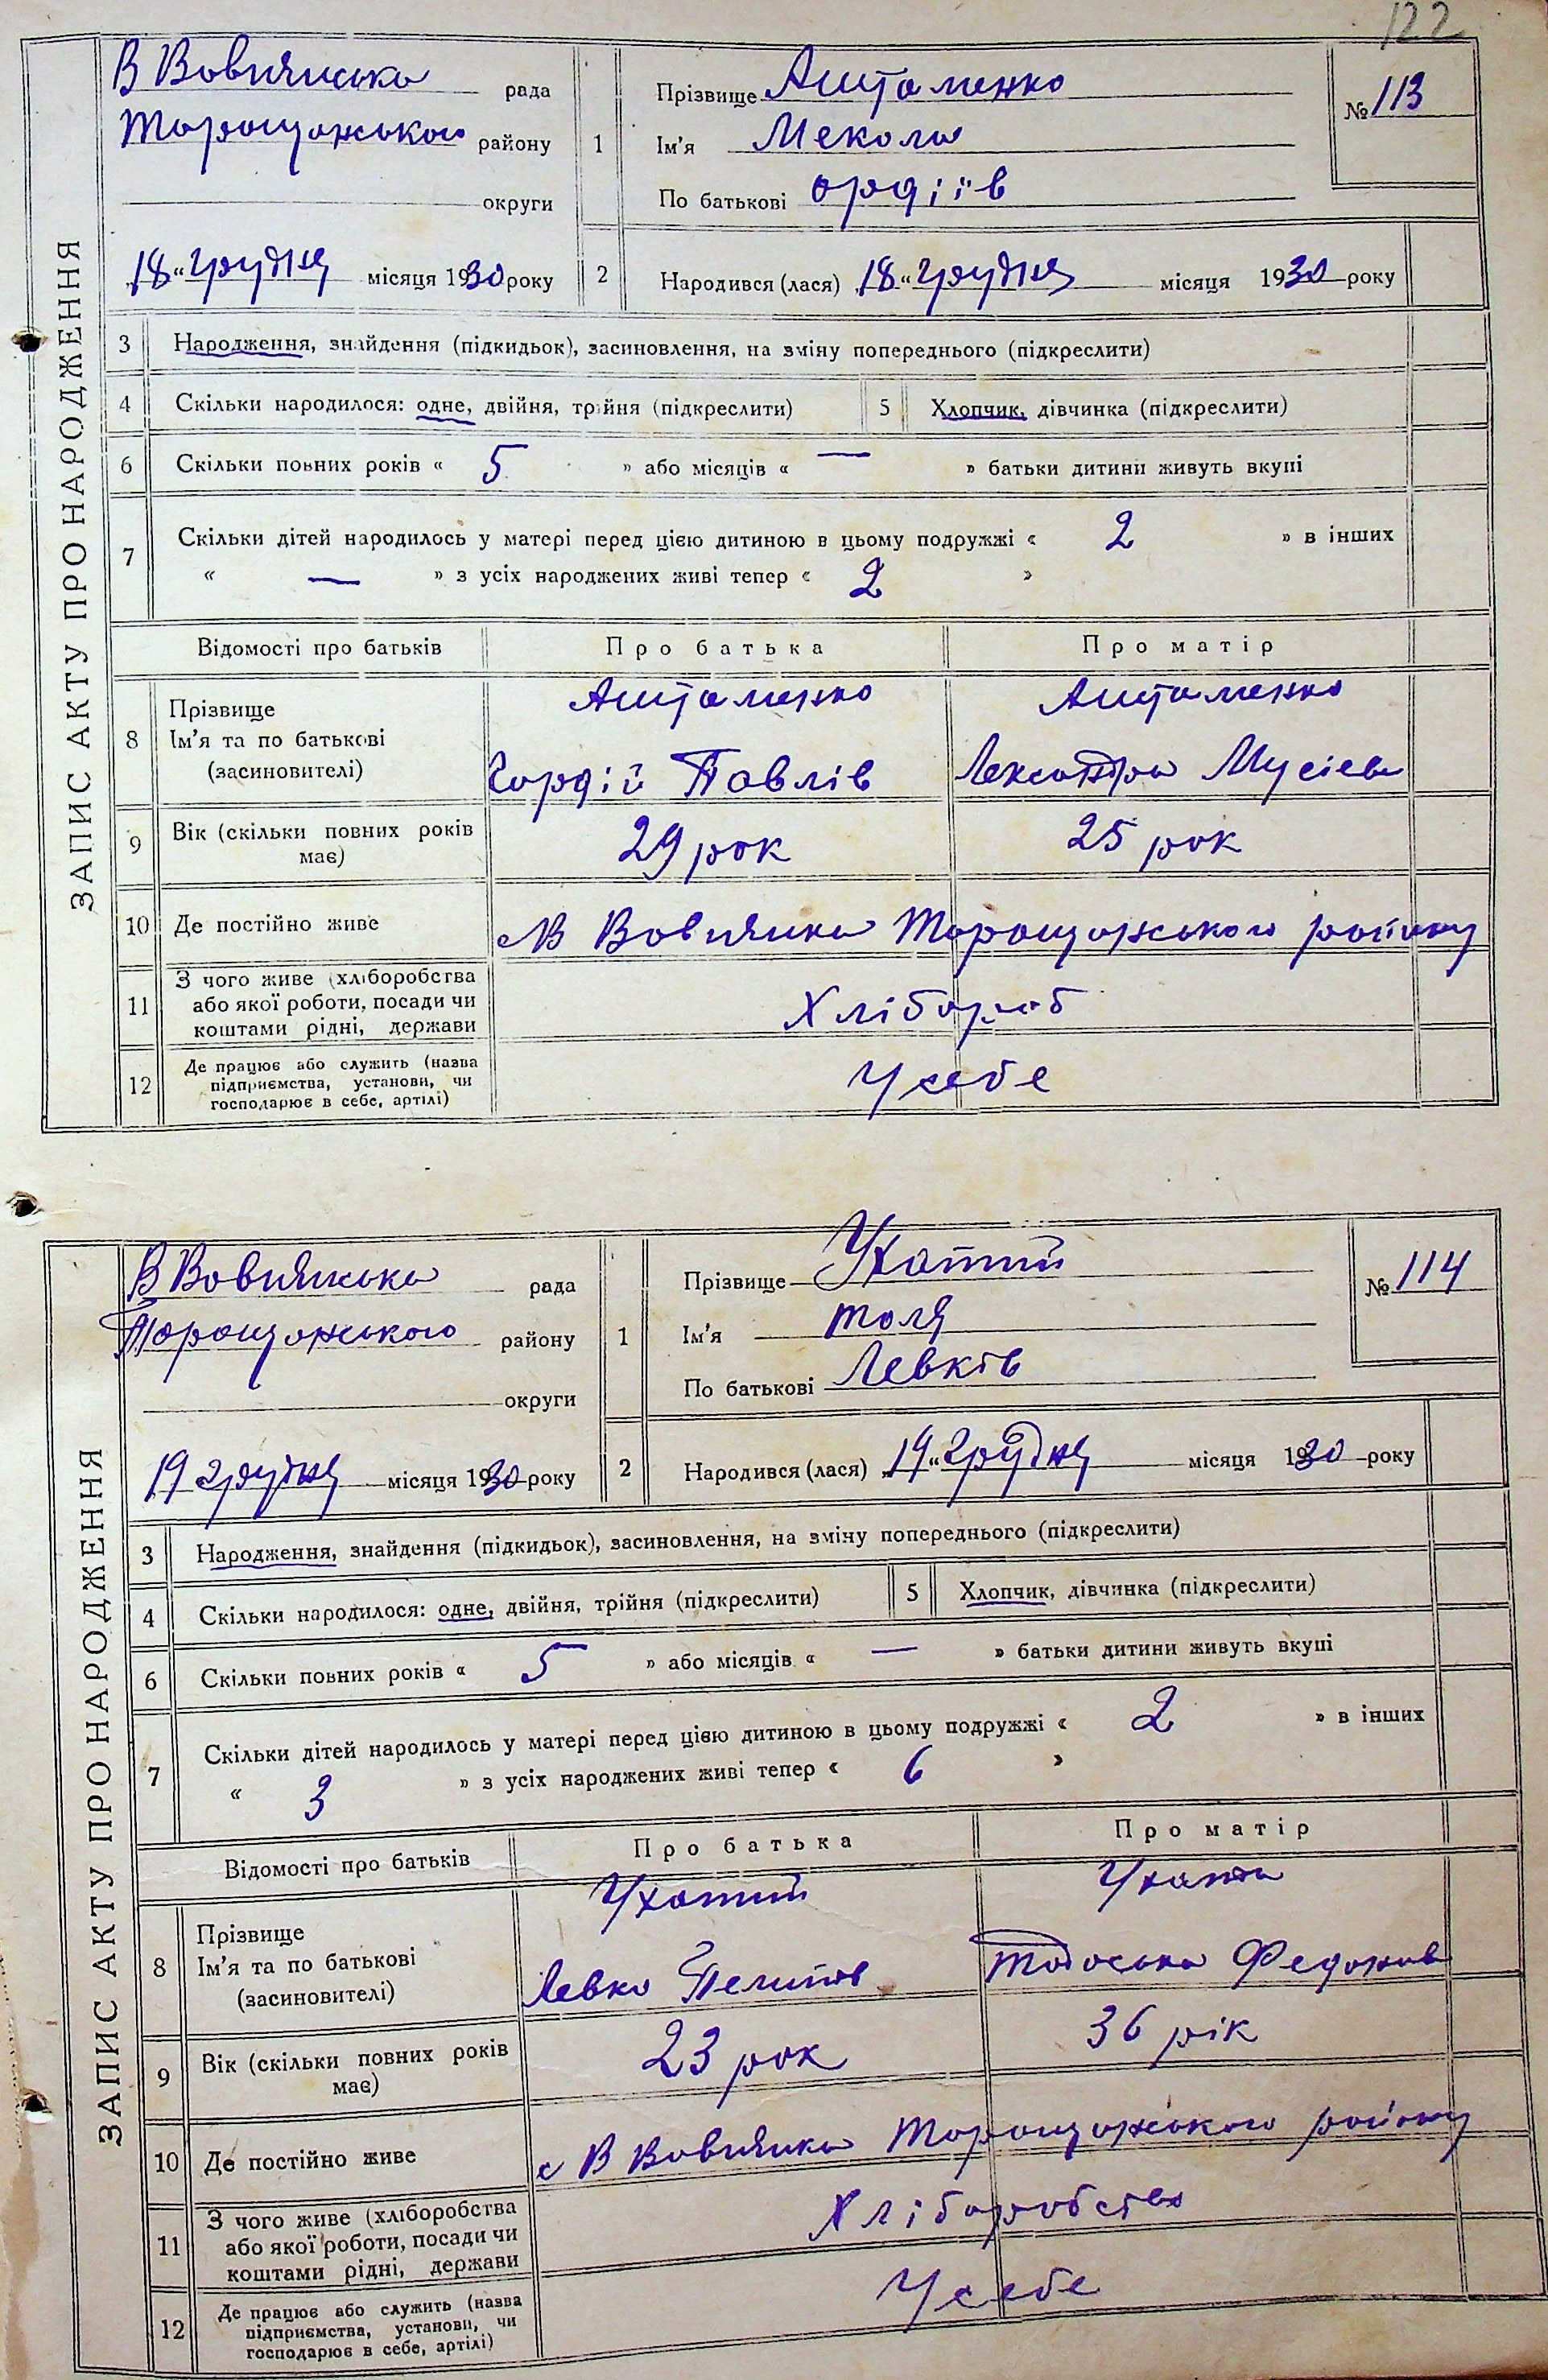 122
ЗАПИС АКТУ ПРО НАРОДЖЕННЯ
В Вовнянська рада
Таращанського району
округи
„18“ грудня місяця 1930 року
1 Прізвище Антаменко
Ім'я Мекола
По батькові ордіїв
№ 113
2 Народився (лася) „18“ грудня місяця 1930 року
3 Народження, знайдення (підкидьок), засиновлення, на зміну попереднього (підкреслити)
4 Скільки народилося: одне, двійня, трійня (підкреслити) 5 Хлопчик, дівчинка (підкреслити)
6 Скільки повних років « 5 » або місяців « — » батьки дитини живуть вкупі
7 Скільки дітей народилось у матері перед цією дитиною в цьому подружжі « 2 » в інших
« — » з усіх народжених живі тепер « 2 »
Відомості про батьків Про батька Про матір
8 Прізвище Антаменко Антаменко
Ім'я та по батькові
(засиновителі) Гордій Павлів Лександра Мусієва
9 Вік (скільки повних років має) 29 рок 25 рок
10 Де постійно живе с В Вовнянка Таращанського району
11 З чого живе (хліборобства
або якої роботи, посади чи
коштами рідні, держави Хлібороб
12 Де працює або служить (назва
підприємства, установи, чи
господарює в себе, артілі) У себе
ЗАПИС АКТУ ПРО НАРОДЖЕННЯ
В Вовнянська рада
Таращанського району
округи
19 грудня місяця 1930 року
1 Прізвище Ухатий
Ім'я толя
По батькові Левків
№ 114
2 Народився (лася) „19“ грудня місяця 1930 року
3 Народження, знайдення (підкидьок), засиновлення, на зміну попереднього (підкреслити)
4 Скільки народилося: одне, двійня, трійня (підкреслити) 5 Хлопчик, дівчинка (підкреслити)
6 Скільки повних років « 5 » або місяців « — » батьки дитини живуть вкупі
7 Скільки дітей народилось у матері перед цією дитиною в цьому подружжі « 2 » в інших
« 3 » з усіх народжених живі тепер « 6 »
Відомості про батьків Про батька Про матір
8 Прізвище Ухатий Ухата
Ім'я та по батькові
(засиновителі) Левко Тодоська
9 Вік (скільки повних років має) 23 рок 36 рік
10 Де постійно живе с В Вовнянка Таращанського району
11 З чого живе (хліборобства
або якої роботи, посади чи
коштами рідні, держави Хліборобство
12 Де працює або служить (назва
підприємства, установи, чи
господарює в себе, артілі) У себе